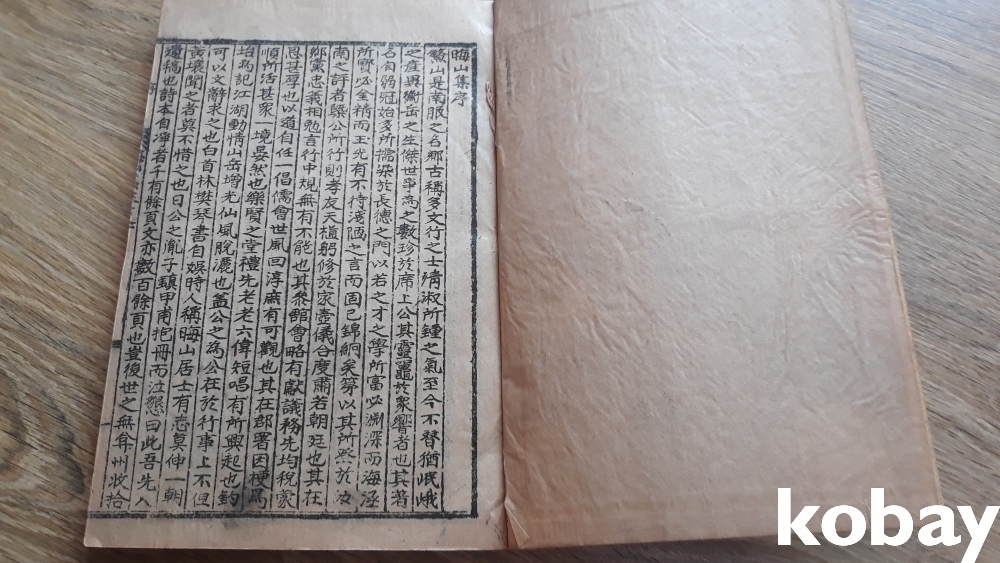 晦山集序
鰲山是南服之名鄕古稱多文行之士淸淑所鍾之氣至今不替猶岷峨
之産與衡岳之生傑世爭高之數珍於席上公其靈鼉於衆響者也其蒼
名自弱冠始多所擩染於長德之門以若之才之學所富必淵深而海涵
所寶必金精而玉光有不待淺陋之言而固已錦絅矣第以其所熟於汝
南之評者槩公所行則孝友天植躬修於家壼儀合度肅若朝廷也其在
鄕黨忠義相勉言行中規無有不能也其參館會略有獻議務先均稅蒙
恩甚厚也以道自任一倡儒會世風回淳庶有可觀也其在郡署因梗爲
順所活甚衆一境晏然也樂賢之堂禮先老老六偉短唱有所興起也釣
坮爲記江湖動情山岳增光仙風脫灑也盖公之爲公在於行事上不但
可以文辭求之也白首林樊琴書自娛時人稱晦山居士有志莫伸一朝
黃壤聞之者莫不惜之也日公之胤子鎭甲甫抱冊而泣懇曰此吾先人
遺稿也詩本自凈者千有餘頁文亦數百餘頁也豈復世之無弇州收拾
kobay